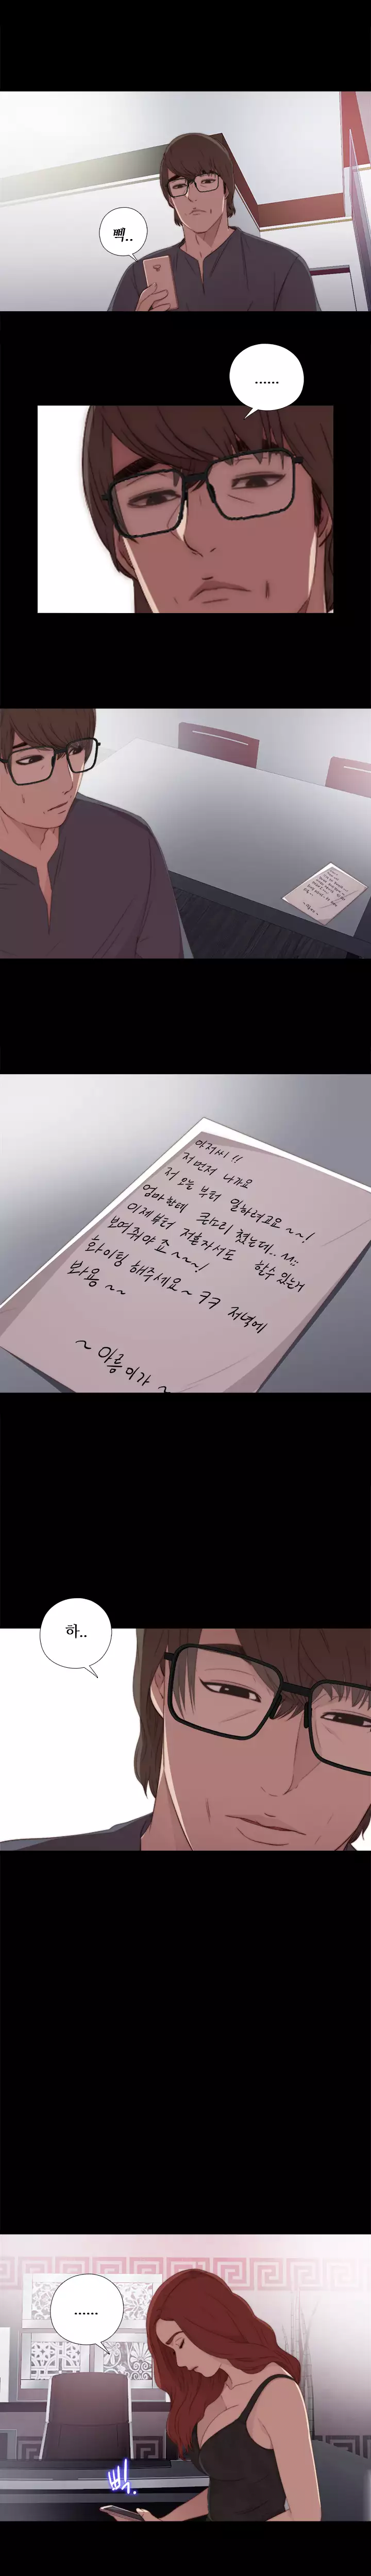 뻭..
......
아저씨!!
저 먼저 나가요
저 오늘 부터 일하려고요~~!
엄마한테 큰소리 쳤는데..^^;;
이제부터 저혼자서도 할수있는거
보여줘야죠~~~!
화이팅 해주세요~ ㅋㅋ 저녁에
봐용~~
~아름이가~
하..
......
삑.